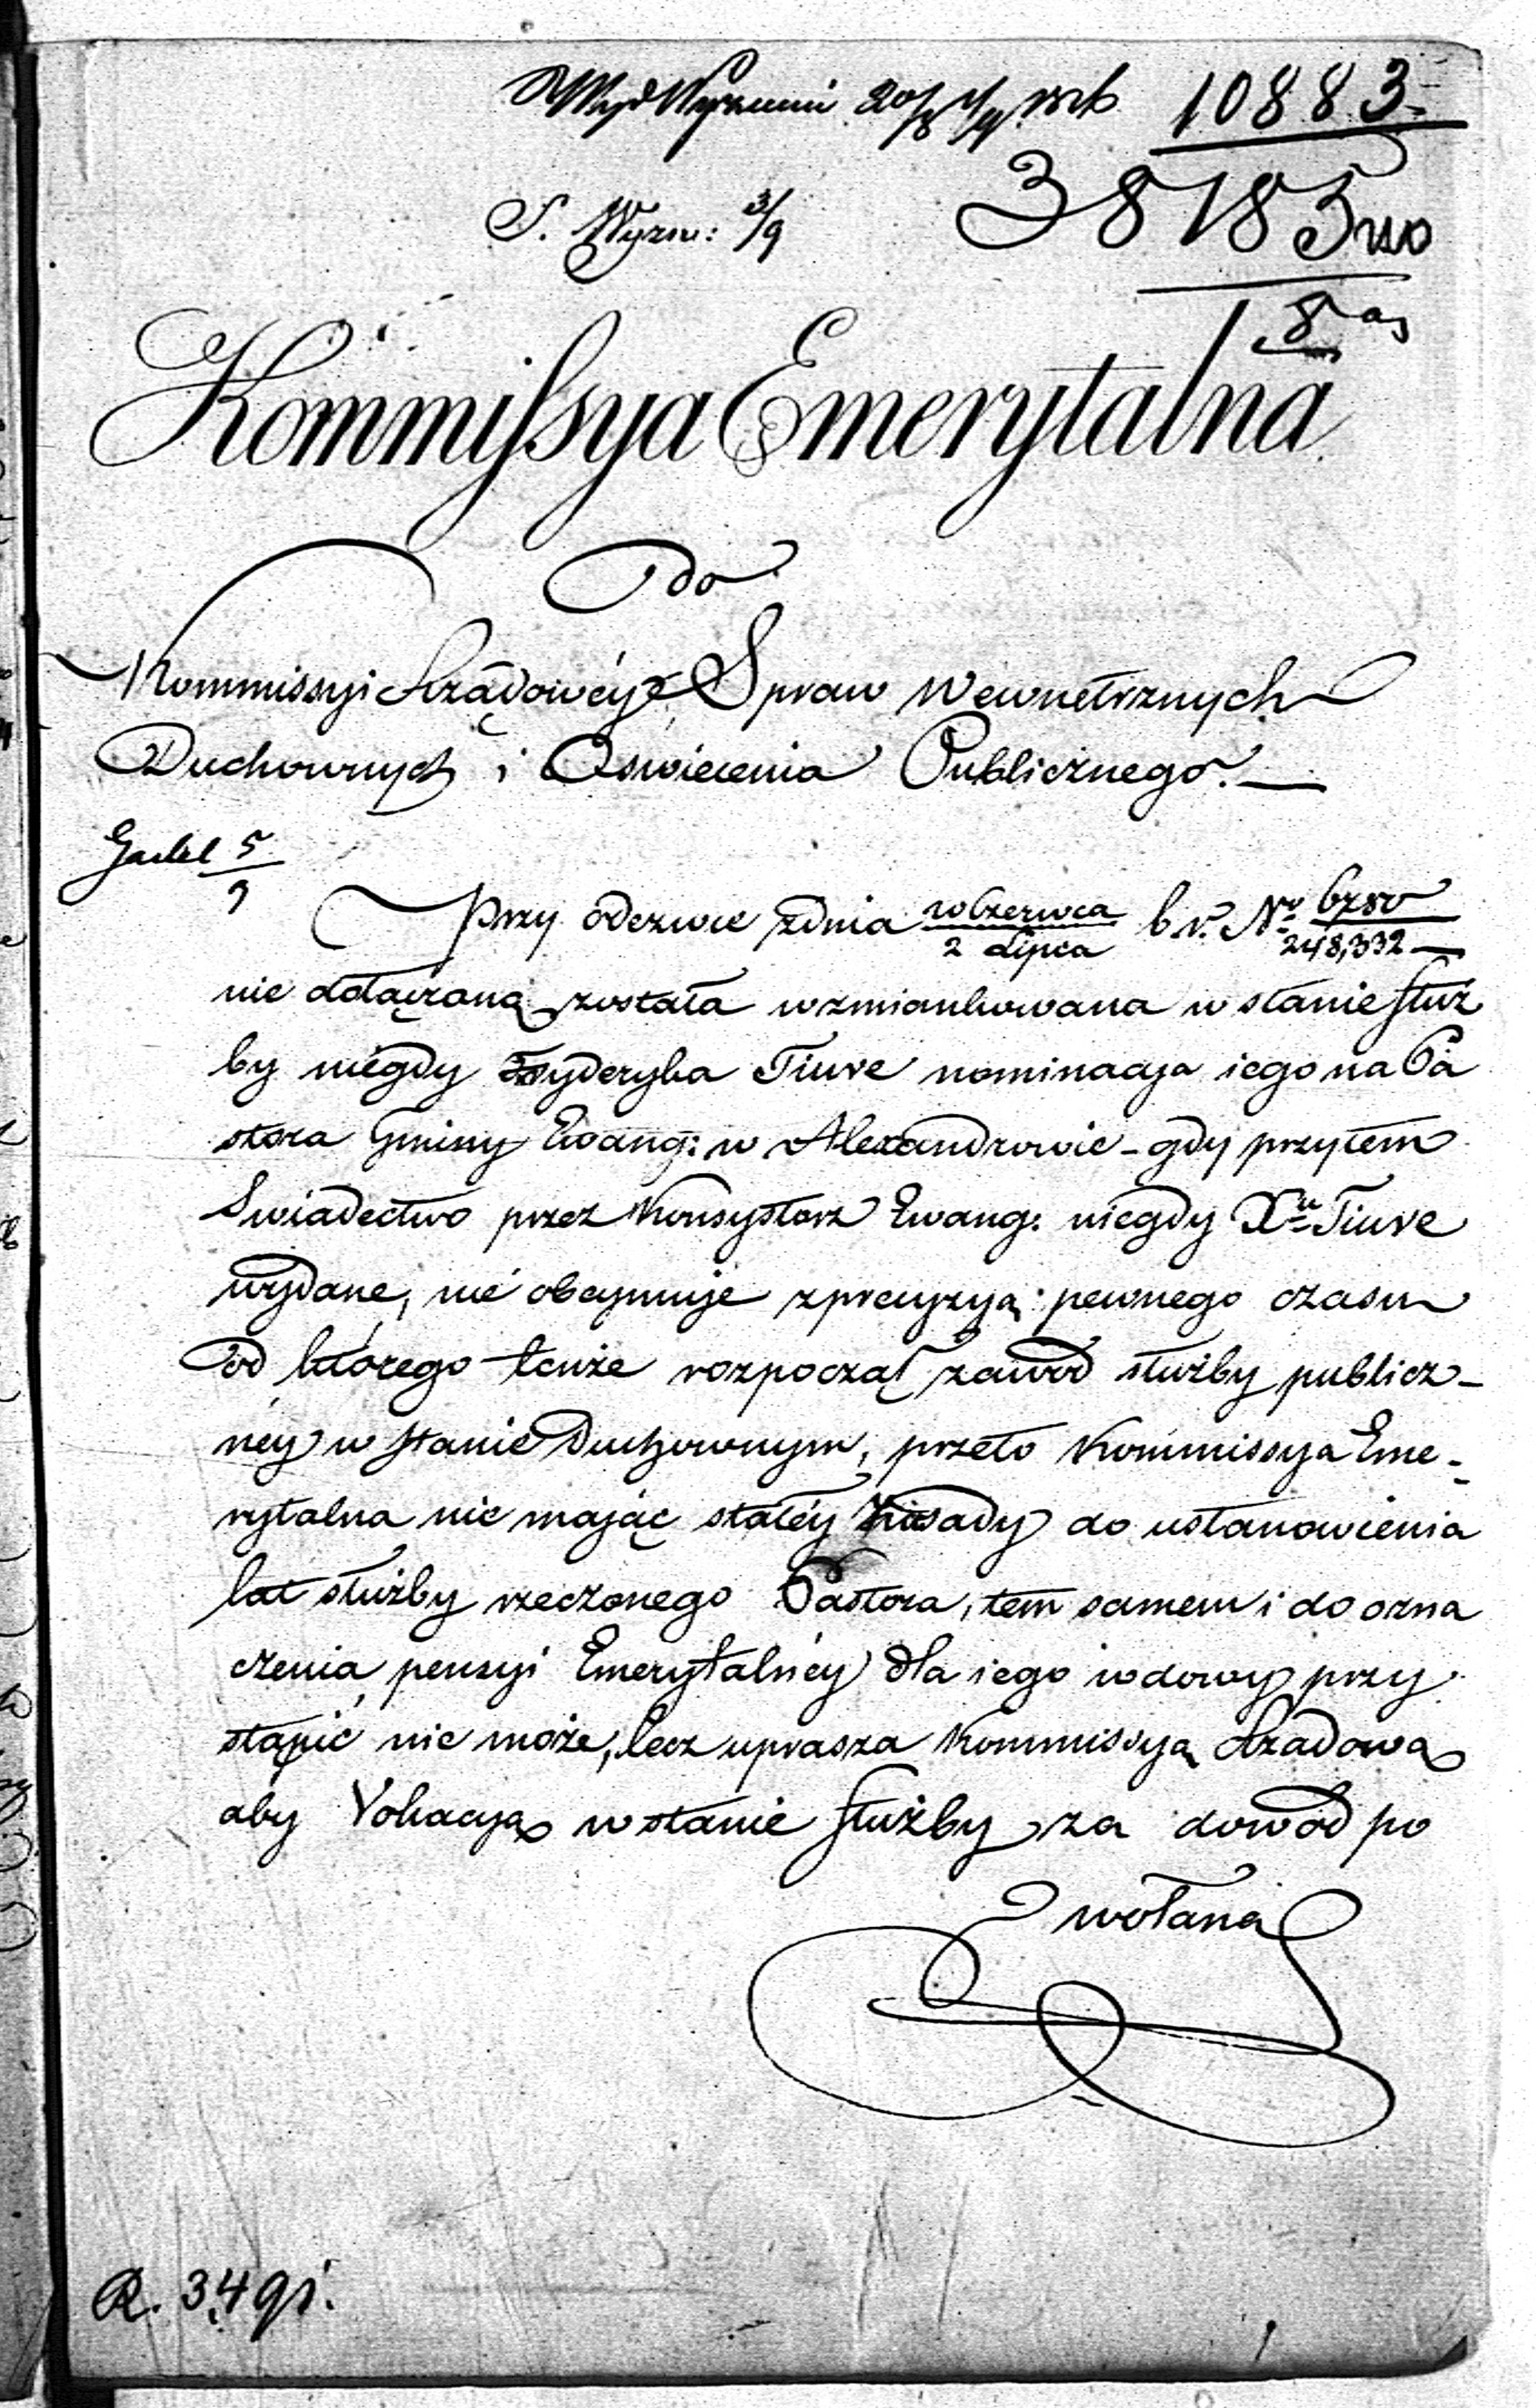 10883
S. Wyzn: 3/9
38185
Kommissya Emerytalna
do
Kommissyi Rządowéy Spraw Wewnętrznych
Duchownych i Oświecenia Publicznego.
5/9
Przy odezwie zdnia 20 Czerwca / 2 Lipca b. r. No 248,332
nie dołączoną została wzmiankowana w stanie służ
by niegdy Fryderyka Tiuve nominacya iego na Pa
stora Gminy Ewang: w Alexandrowie – gdy przytem
Świadectwo przez Konsystorz Ewang: niegdy Xu Tiuve
wydane, nie obeymuje z precyzyą pewnego czasu
od którego tenże rozpoczął zawód służby publicz-
néy w stanie Duchownym, przeto Kommissya Eme-
rytalna nie mając stałéy Zasady do ustanowienia
lat służby rzeczonego Pastora, tem samem i do ozna
czenia pensyi Emerytalnéy dla iego wdowy przy
stąpić nie może, lecz uprasza Kommissyą Rządową
aby Vokacyą w stanie służby za dowód po
wołaną
R. 3491.